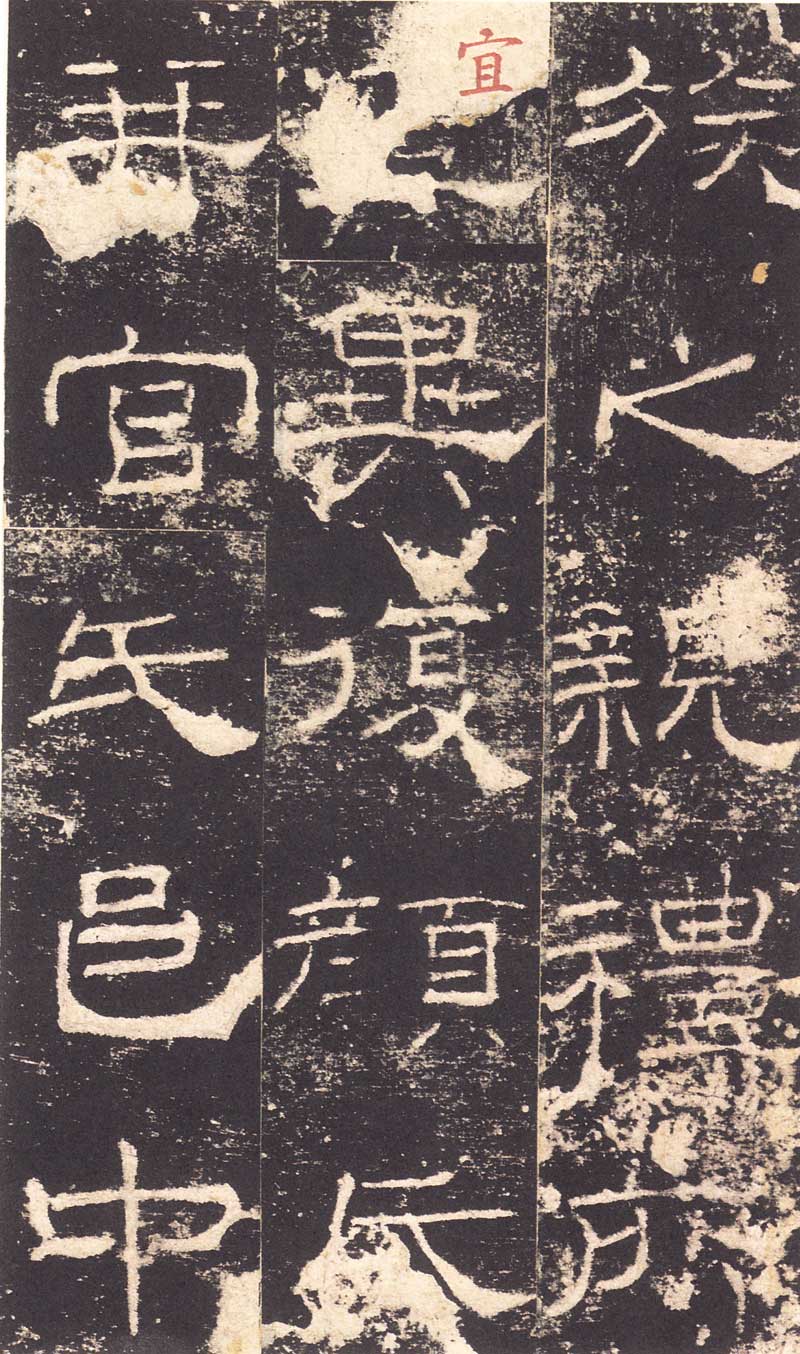 族之親禮所
宜異復顏氏
并官氏邑中